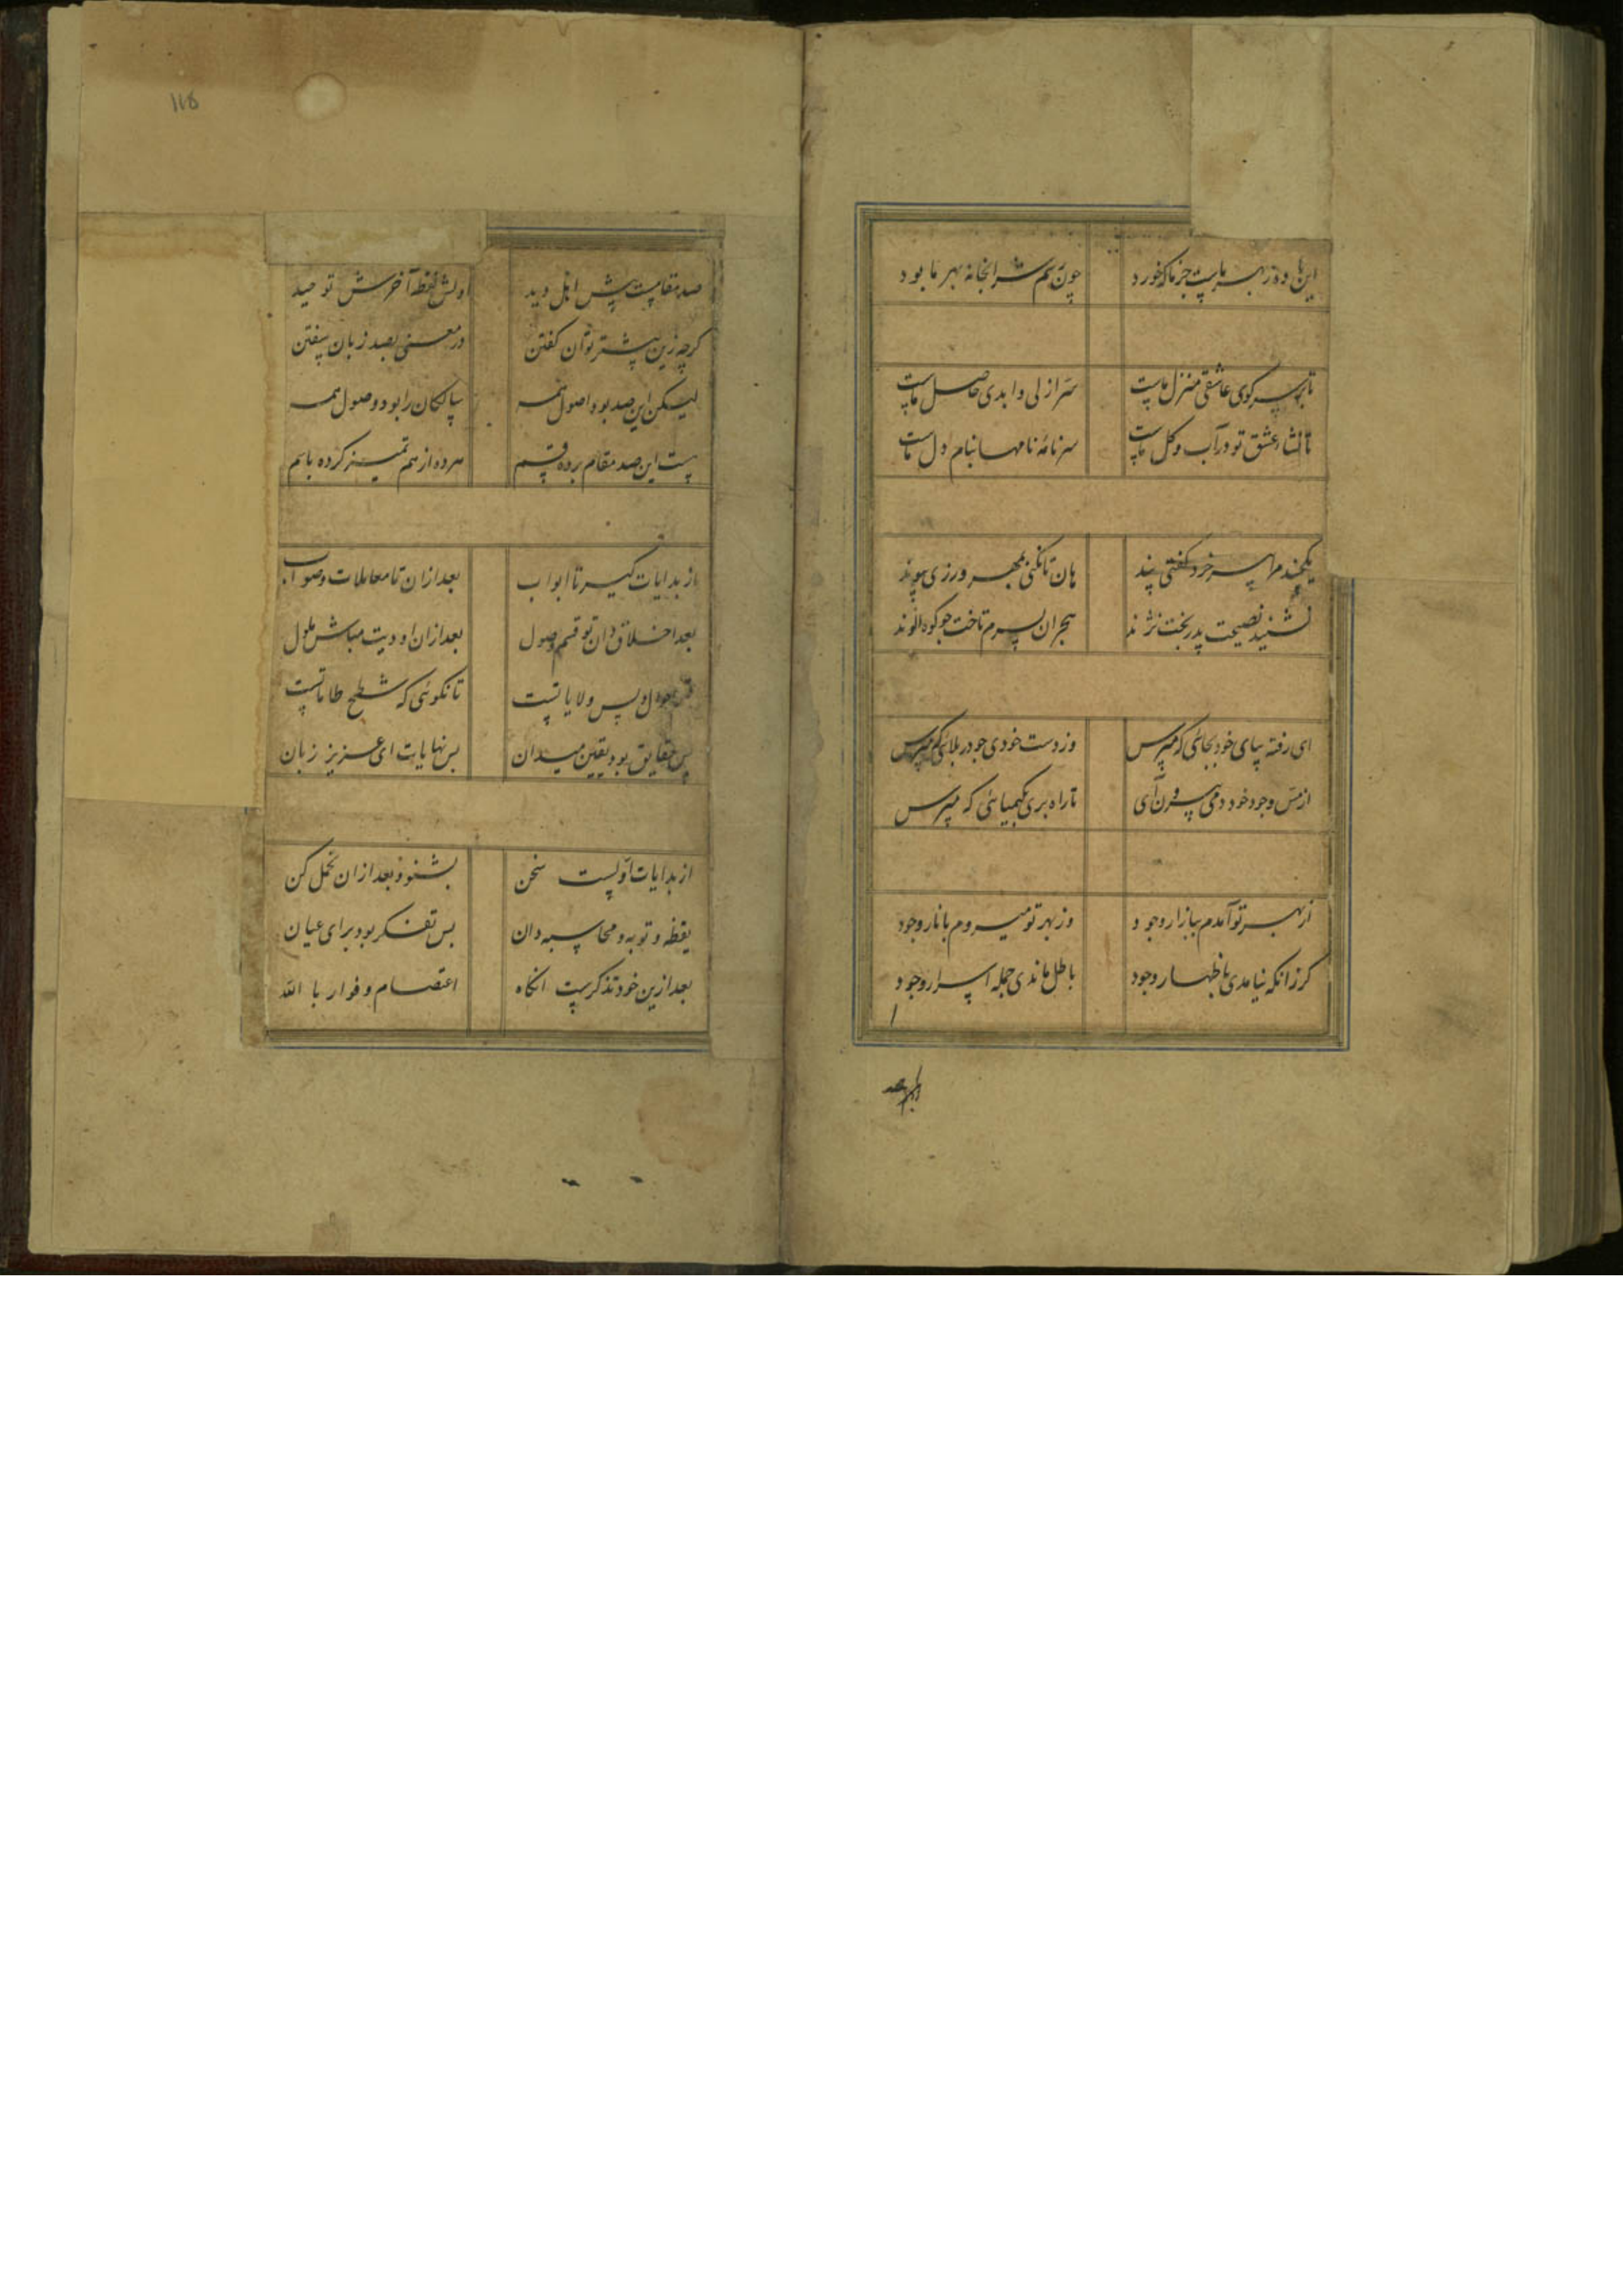 این باده ز بهر ماست جز ما که خورد چون خم شرابخانه بهر ما بود
تا بر سر کوی عاشقی منزل ماست سرّ ازلی و ابدی حاصل ماست
تا نشاء عشق تو در آب و گل ماست سرنامهٔ نامها بنام دل ماست
یکچند مرا پسر خرد گفتی پند هان تا نکنی بمهرورزی پیوند
نشنید نصیحت پدر بخت نژند هجران بسرم تاخت چو کوه الوند
ای رفته بپای خود بجائی که مپرس وز دست خودی خود در بلائی که مپرس
از مس وجود خود دمی بیرون آی تا راه بری بکیمیائی که مپرس
از بهر تو آمدم ببازار وجود وز بهر تو میروم بانار وجود
گر زانکه نیامدی باظهار وجود باطل ماندی جمله اسرار وجود
118
صد مقامست پیش اهل دید اولش یقظه آخرش توحید
گرچه زین بیشتر توان گفتن در معنی بصد زبان سفتن
لیکن این صد بود اصول همه سالکان را بود وصول همه
هست این صد مقام بر ده قسم هر ده از هم تمیز کرده باسم
از بدایات گیر تا ابواب بعد ازان تا معاملات و صواب
بعد اخلاق دان تو قسم وصول بعد ازان اودیت مباش ملول
پس ولایاتست تا نگوئی که شطح طاماتست
پس حقایق بود یقین میدان پس نهایات ای عزیز زبان
از بدایات اولست سخن بشنو و بعد ازان تحمل کن
یقظه و توبه و محاسبه دان پس تفکر بود برای عیان
بعد ازین خود تذکرست انکاه اعتصام و فرار با الله